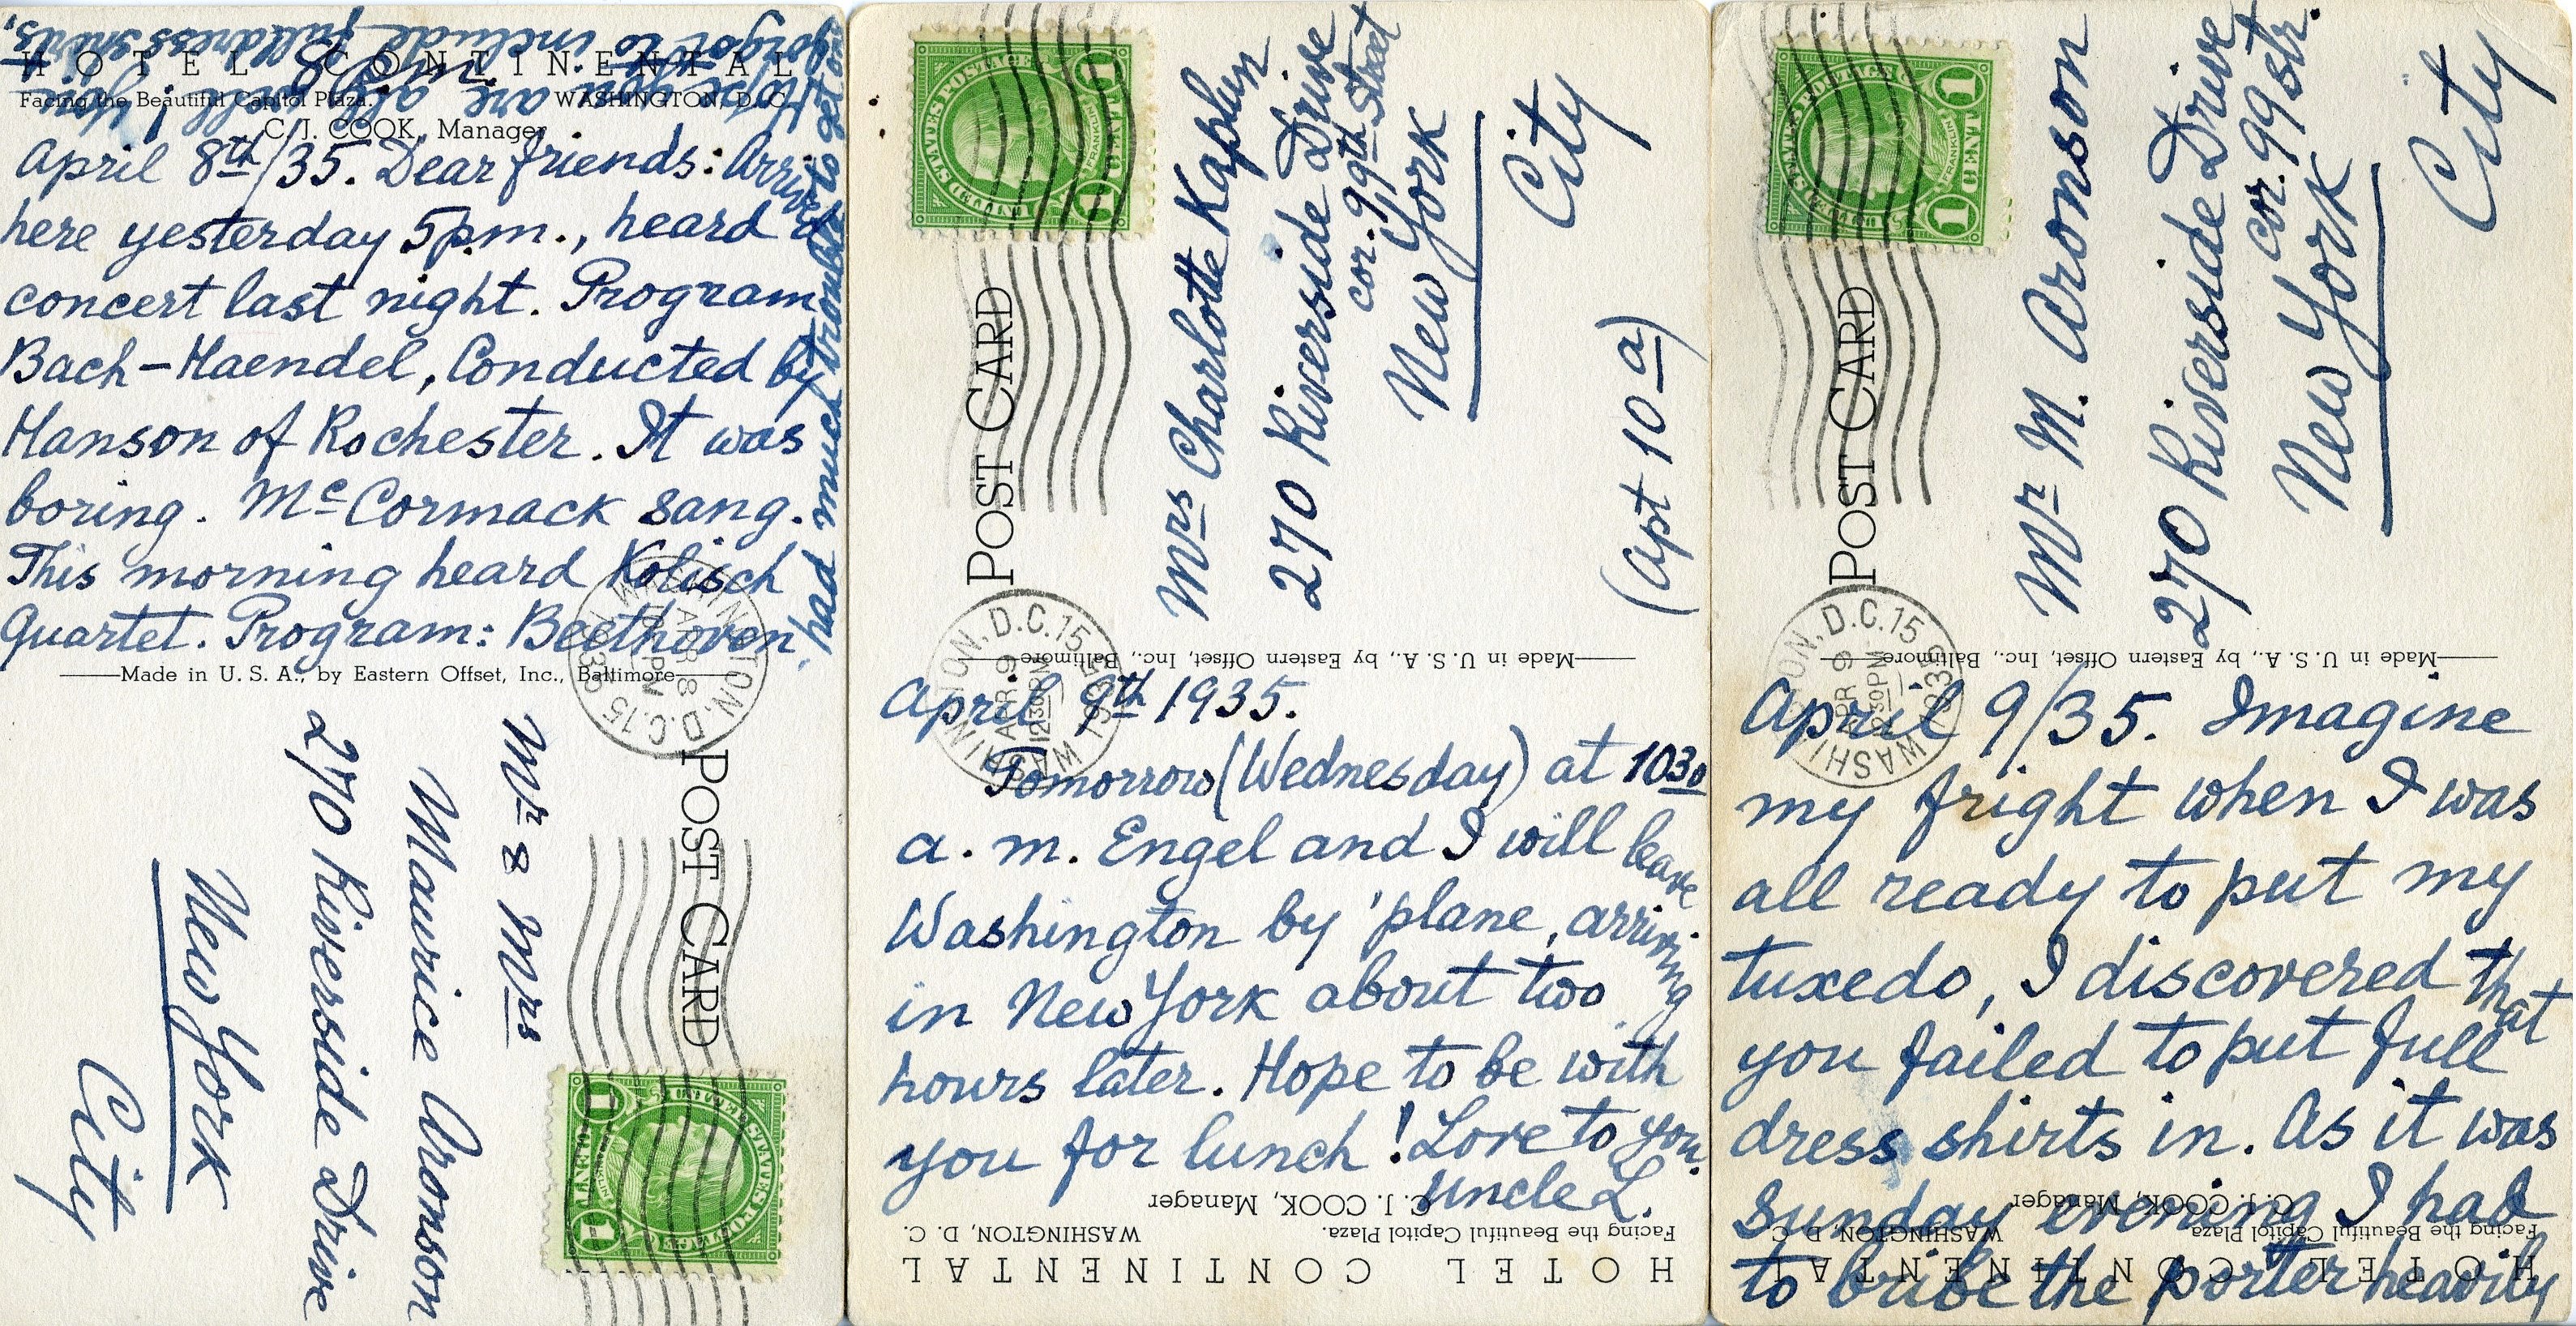 HOTEL CONTINENTAL
Facing the Beautiful Capitol Plaza. WASHINGTON, D. C.
C. J. COOK, Manager
April 8th/35. Dear friends: Arrived
here yesterday 5pm., heard a
concert last night. Program
Bach-Haendel, Conducted by
Hanson of Rochester. It was
boring. McCormack sang.
This morning heard Kolisch
Quartet. Program: Beethoven.
Hope you are all well! You
forgot to include fulldress shirts,
had much trouble to get one
Made in U. S. A., by Eastern Offset, Inc., Baltimore
WASHINGTON, D.C. 15
APR 8
PM
1935
POST CARD
Mr & Mrs
Maurice Aronson
270 Riverside Drive
New York
City
UNITED STATES POSTAGE
FRANKLIN
1 CENT 1
UNITED STATES POSTAGE
FRANKLIN
1 CENT 1
POST CARD
WASHINGTON, D.C. 15
APR 9
12 30 PM
1935
Mrs Charlotte Kaplun
270 Riverside Drive
cor. 99th Street
New York
City
(Apt 10 a)
Made in U. S. A., by Eastern Offset, Inc., Baltimore
April 9th 1935.
Tomorrow (Wednesday) at 1030
a. m. Engel and I will leave
Washington by 'plane, arriving
in New York about two
hours later. Hope to be with
you for lunch! Love to you.
Uncle L.
C. J. COOK, Manager
Facing the Beautiful Capitol Plaza. WASHINGTON, D. C.
HOTEL CONTINENTAL
UNITED STATES POSTAGE
FRANKLIN
1 CENT 1
POST CARD
WASHINGTON, D.C. 15
APR 9
12 30 PM
1935
Mr M. Aronson
270 Riverside Drive
cor. 99 str.
New York
City
Made in U. S. A., by Eastern Offset, Inc., Baltimore
April 9/35. Imagine
my fright when I was
all ready to put my
tuxedo, I discovered that
you failed to put full
dress shirts in. As it was
Sunday evening I had
to bribe the porter heavily
C. J. COOK, Manager
Facing the Beautiful Capitol Plaza. WASHINGTON, D. C.
HOTEL CONTINENTAL